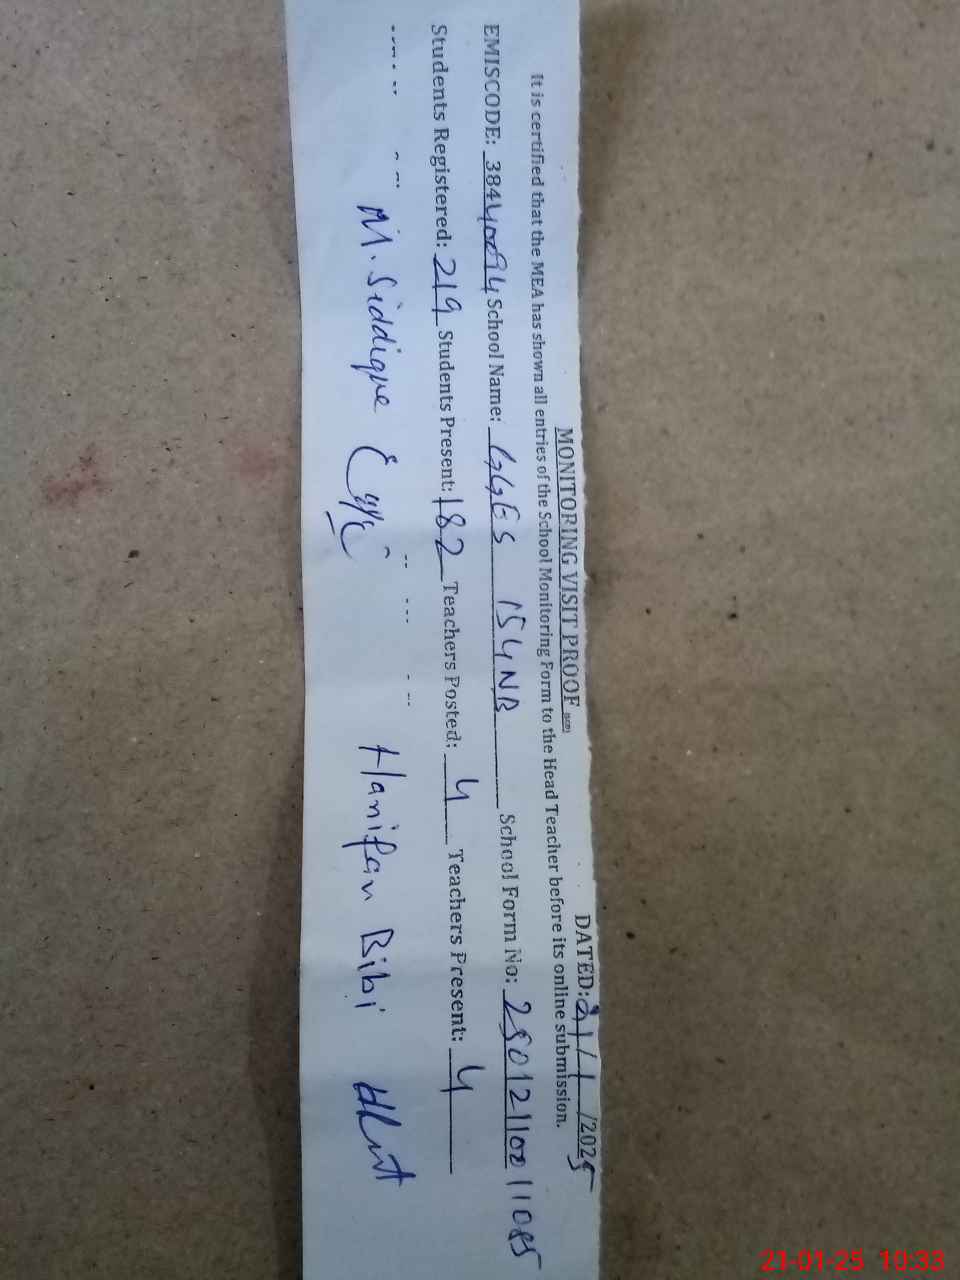 MONITORING VISIT PROOF
DATED: 21/1/2025
It is certified that the MEA has shown all entries of the School Monitoring Form to the Head Teacher before its online submission.
EMISCODE: 38440094 School Name: GGES 154NB School Form No: 25012110011085
Students Registered: 219 Students Present: 182 Teachers Posted: 4 Teachers Present: 4
M. Siddique Hanifan Bibi
21-01-25 10:33